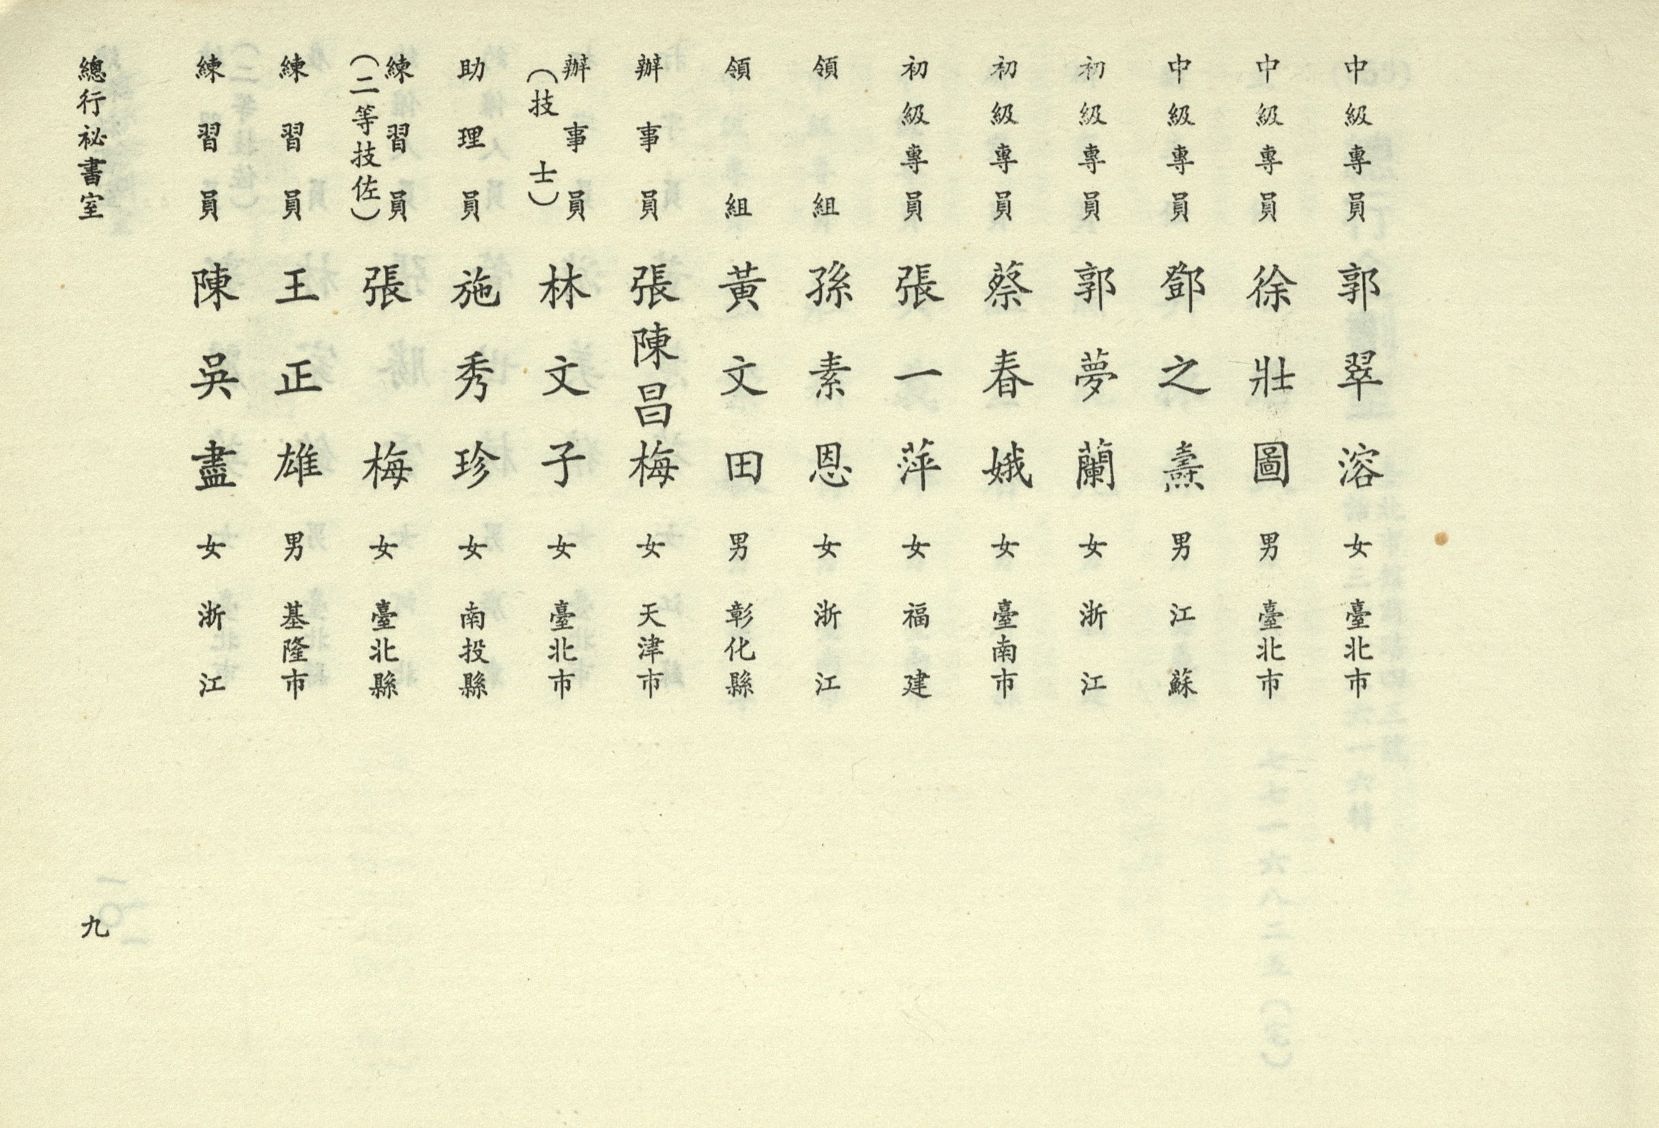 中級專員 郭翠溶 女 臺北市
中級專員 徐壯圖 男 臺北市
中級專員 鄧之燾 男 江蘇
初級專員 郭夢蘭 女 浙江
初級專員 蔡春娥 女 臺南市
初級專員 張一萍 女 福建
領組 孫素恩 女 浙江
領組 黃文田 男 彰化縣
辦事員 張陳昌梅 女 天津市
辦事員(技士) 林文子 女 臺北市
助理員 施秀珍 女 南投縣
練習員(二等技佐) 張梅 女 臺北縣
練習員 王正雄 男 基隆市
練習員 陳吳盡 女 浙江
總行祕書室
九